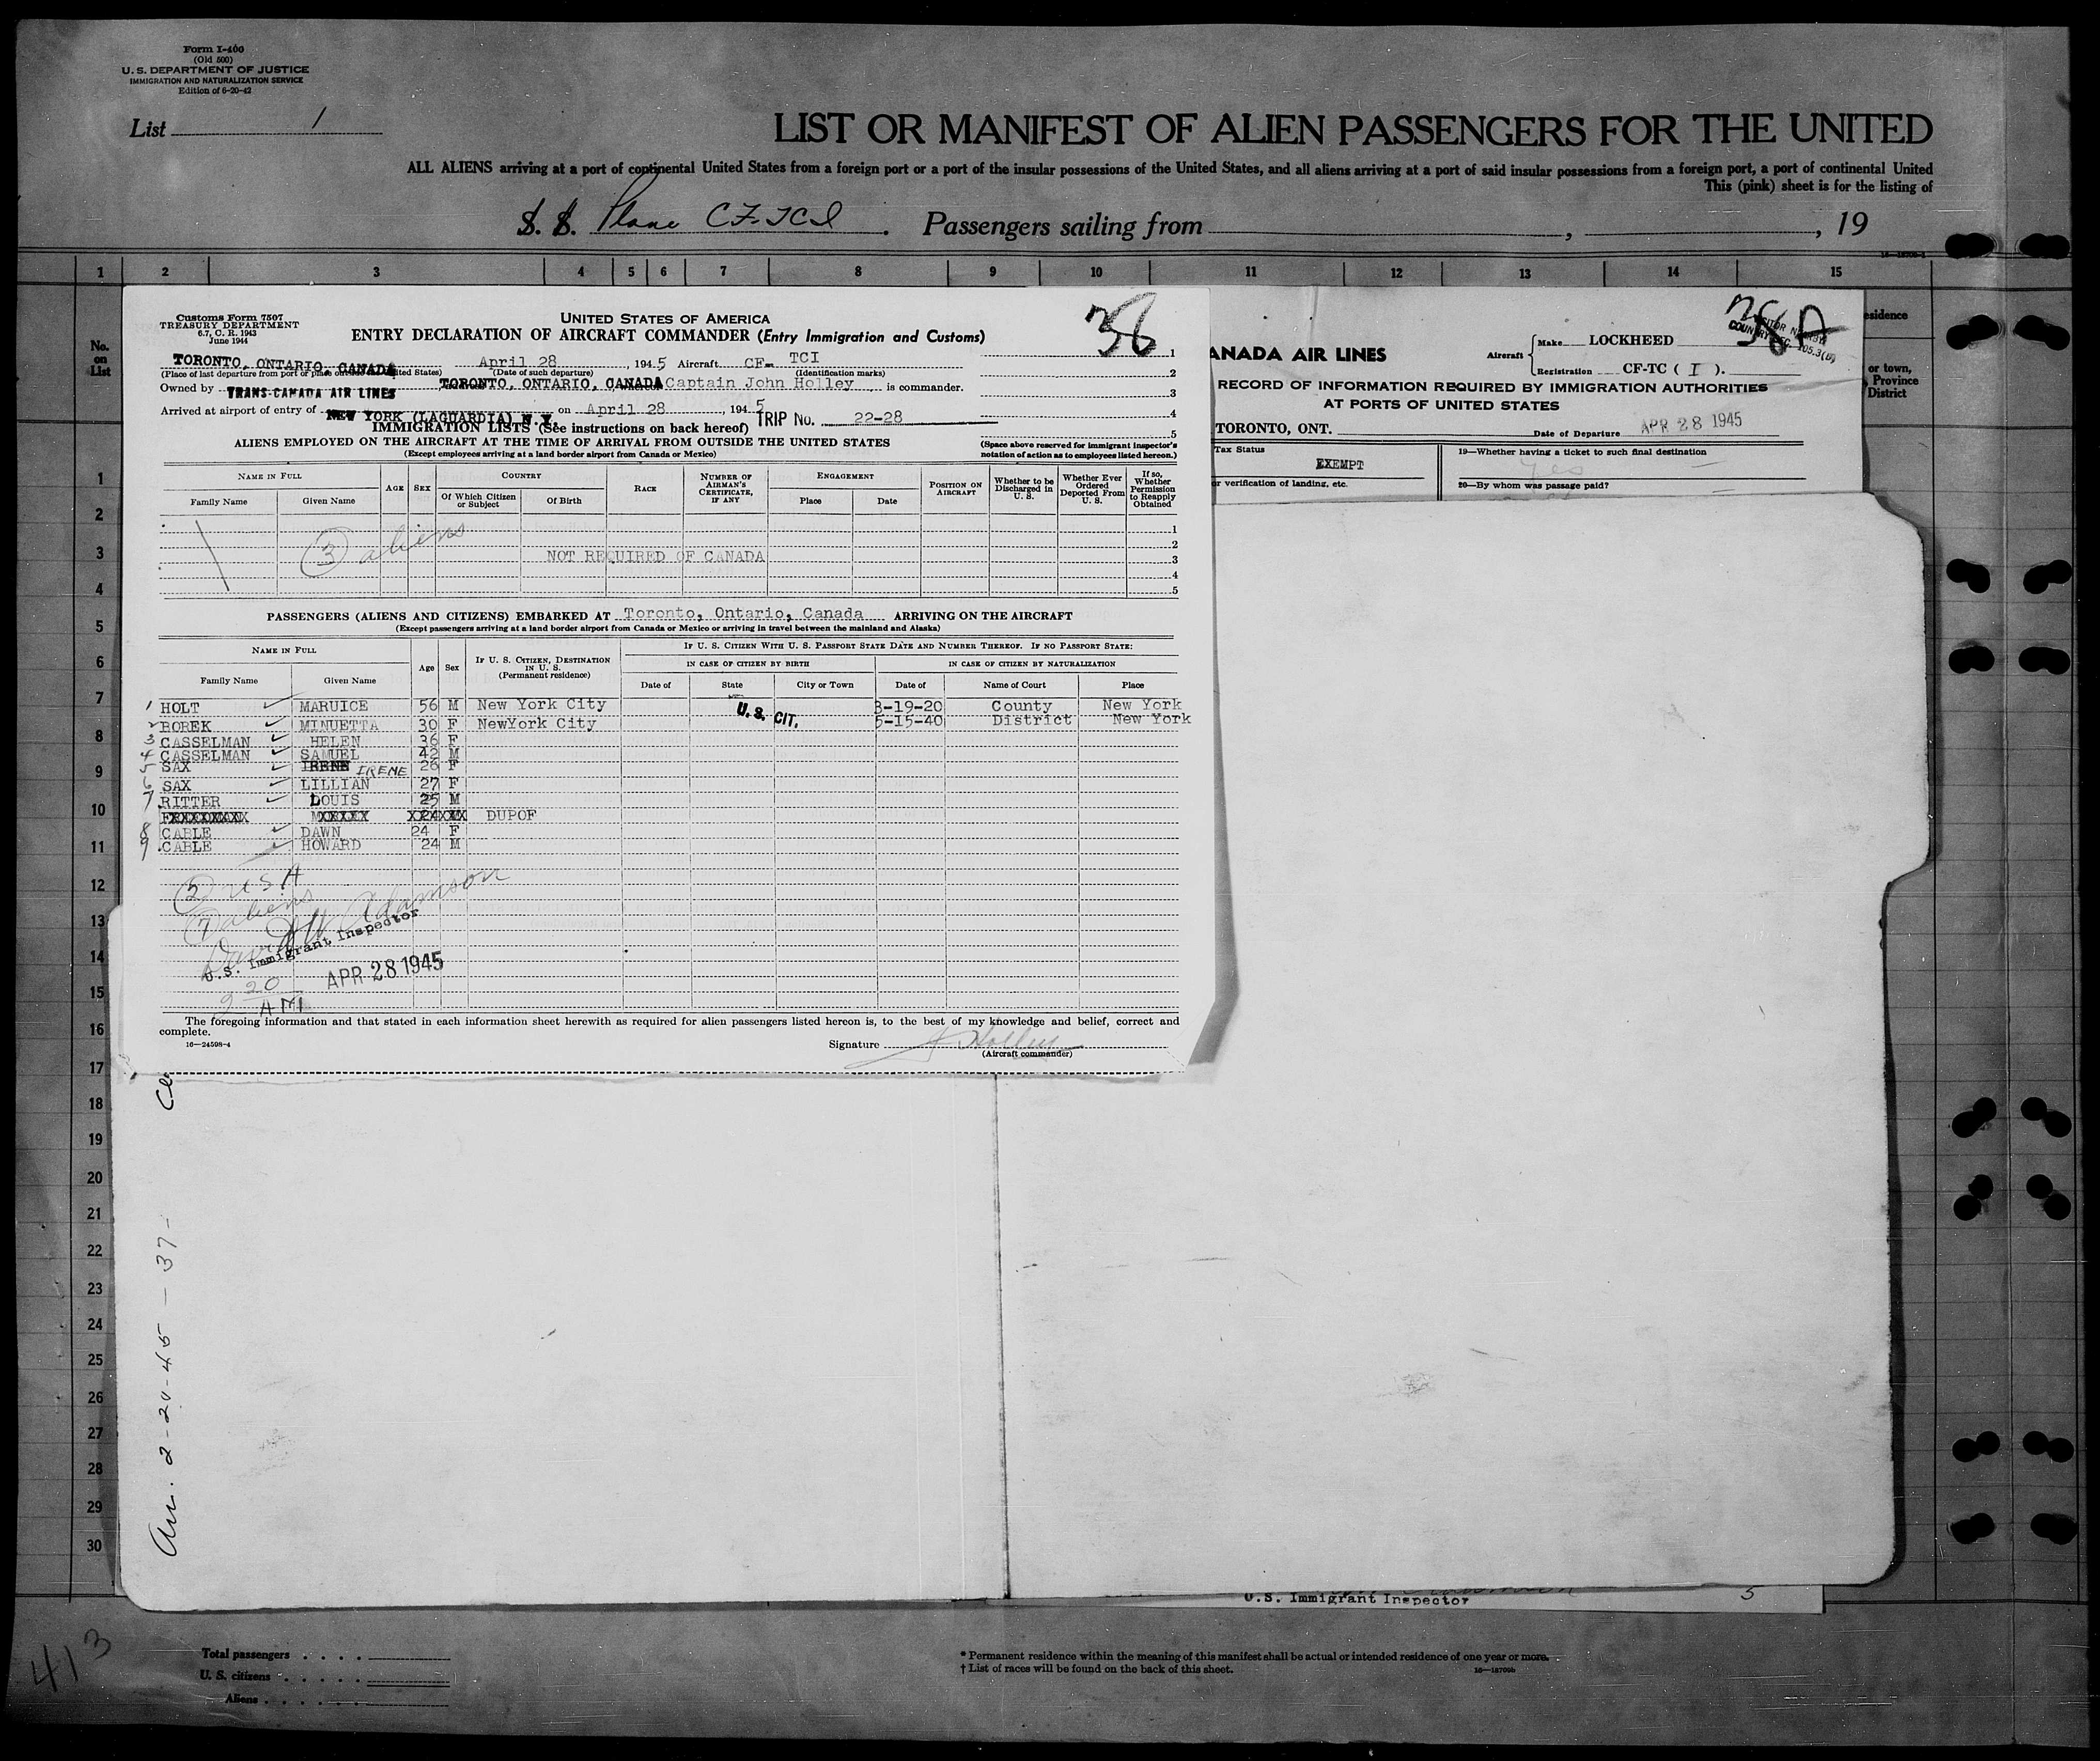 Form I-400
(Old 500)
U. S. DEPARTMENT OF JUSTICE
IMMIGRATION AND NATURALIZATION SERVICE
Edition of 6-20-42
List 1
LIST OR MANIFEST OF ALIEN PASSENGERS FOR THE UNITED
ALL ALIENS arriving at a port of continental United States from a foreign port or a port of the insular possessions of the United States, and all aliens arriving at a port of said insular possessions from a foreign port, a port of continental United
This (pink) sheet is for the listing of
S. S. Plane CF-TCI . Passengers sailing from , , 19
1 2 3 4 5 6 7 8 9 10 11 12 13 14 15
No. on List
esidence
or town, Province District
Customs Form 7507
TREASURY DEPARTMENT
6.7, C. R. 1943
June 1944
38
UNITED STATES OF AMERICA
ENTRY DECLARATION OF AIRCRAFT COMMANDER (Entry Immigration and Customs)
TORONTO, ONTARIO, CANADA April 28, 1945 Aircraft CF- TCI 1
(Place of last departure from port or place outside United States) (Date of such departure) (Identification marks) 2
Owned by TRANS-CANADA AIR LINES TORONTO, ONTARIO, CANADA Captain John Holley is commander. 3
Arrived at airport of entry of NEW YORK (LAGUARDIA) N.Y. on April 28, 1945 TRIP No. 22-28 4
IMMIGRATION LISTS (See instructions on back hereof) 5
ALIENS EMPLOYED ON THE AIRCRAFT AT THE TIME OF ARRIVAL FROM OUTSIDE THE UNITED STATES
(Except employees arriving at a land border airport from Canada or Mexico)
(Space above reserved for immigrant inspector's notation of action as to employees listed hereon.)
NAME IN FULL AGE SEX COUNTRY RACE NUMBER OF AIRMAN'S CERTIFICATE, IF ANY ENGAGEMENT POSITION ON AIRCRAFT Whether to be Discharged in U. S. Whether Ever Ordered Deported From U. S. If so, Whether Permission to Reapply Obtained
Family Name Given Name Of Which Citizen or Subject Of Birth Place Date
1
2
3 aliens NOT REQUIRED OF CANADA 3
4
5
PASSENGERS (ALIENS AND CITIZENS) EMBARKED AT Toronto, Ontario, Canada ARRIVING ON THE AIRCRAFT
(Except passengers arriving at a land border airport from Canada or Mexico or arriving in travel between the mainland and Alaska)
NAME IN FULL Age Sex IF U. S. CITIZEN, DESTINATION IN U. S. (Permanent residence) IF U. S. CITIZEN WITH U. S. PASSPORT STATE DATE AND NUMBER THEREOF. IF NO PASSPORT STATE:
IN CASE OF CITIZEN BY BIRTH IN CASE OF CITIZEN BY NATURALIZATION
Family Name Given Name Date of State City or Town Date of Name of Court Place
1 HOLT MARUICE 56 M New York City U.S. CIT. 3-19-20 County New York
2 BOREK MINUETTA 30 F NewYork City 5-15-40 District New York
3 CASSELMAN HELEN 36 F
4 CASSELMAN SAMUEL 42 M
5 SAX IRENE IRENE 26 F
6 SAX LILLIAN 27 F
7 RITTER LOUIS 25 M
DUPOF
8 CABLE DAWN 24 F
9 CABLE HOWARD 24 M
2 USA
7 aliens
David W Adamson
U.S. Immigrant Inspector
APR 28 1945
9 20
AM
The foregoing information and that stated in each information sheet herewith as required for alien passengers listed hereon is, to the best of my knowledge and belief, correct and
complete.
16—24598-4
Signature J Holley
(Aircraft commander)
38A
ANADA AIR LINES
Aircraft Make LOCKHEED
Registration CF-TC ( I ).
RECORD OF INFORMATION REQUIRED BY IMMIGRATION AUTHORITIES
AT PORTS OF UNITED STATES
TORONTO, ONT. Date of Departure APR 28 1945
Tax Status EXEMPT
or verification of landing, etc.
19—Whether having a ticket to such final destination yes
20—By whom was passage paid?
1
2
3
4
5
6
7
8
9
10
11
12
13
14
15
16
17
18
19
20
21
22
23
24
25
26
27
28
29
30
U.S. Immigrant Inspector
5
413
Total passengers
U. S. citizens
Aliens
* Permanent residence within the meaning of this manifest shall be actual or intended residence of one year or more.
† List of races will be found on the back of this sheet.